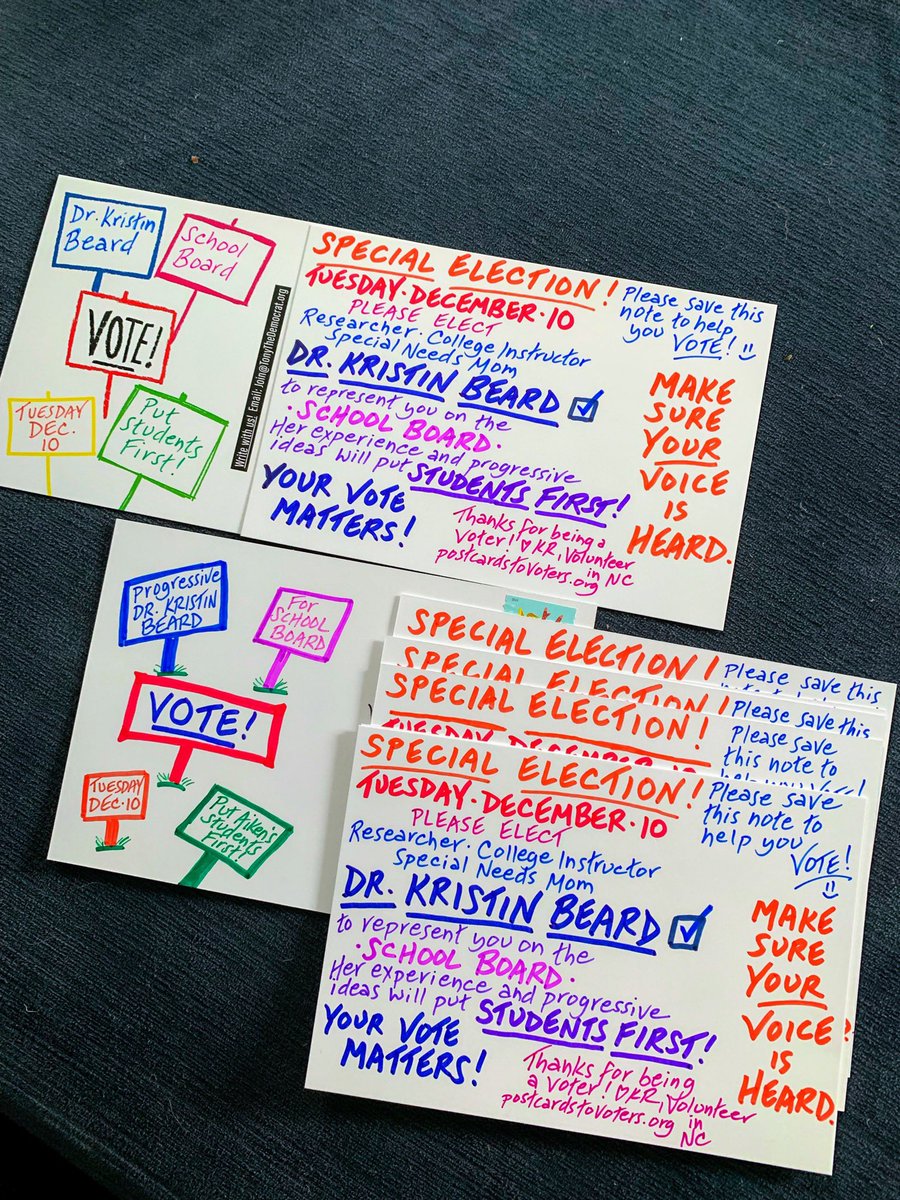 Dr. Kristin
Beard
School
Board
VOTE!
TUESDAY
DEC.
10
Put
Students
First!
Write with us! Email: Join@TonyTheDemocrat.org
SPECIAL ELECTION!
TUESDAY·DECEMBER·10
PLEASE ELECT
Researcher·College Instructor
Special Needs Mom
DR. KRISTIN BEARD
to represent you on the
·SCHOOL BOARD·
Her experience and progressive
ideas will put STUDENTS FIRST!
YOUR VOTE
MATTERS!
Thanks for being a
voter! ♡KR, Volunteer
in NC
postcardstovoters.org
Please save this
note to help
you VOTE!
MAKE
SURE
YOUR
VOICE
IS
HEARD.
PROGRESSIVE
DR. KRISTIN
BEARD
FOR
SCHOOL
BOARD
VOTE!
TUESDAY
DEC·10
Put Aiken's
Students
First!
SPECIAL ELECTION!
Please save this
note to help
SPECIAL ELECTION!
Please save this
SPECIAL ELECTION!
TUESDAY·DECEMBER·10
Please save
this note to
help you
SPECIAL ELECTION!
TUESDAY·DECEMBER·10
PLEASE ELECT
Researcher·College Instructor
Special Needs Mom
DR. KRISTIN BEARD
to represent you on the
·SCHOOL BOARD·
Her experience and progressive
ideas will put STUDENTS FIRST!
YOUR VOTE
MATTERS!
Thanks for being
a voter! ♡KR, Volunteer
in
postcardstovoters.org
NC
Please save
this note to
help you
VOTE!
MAKE
SURE
YOUR
VOICE
IS
HEARD.